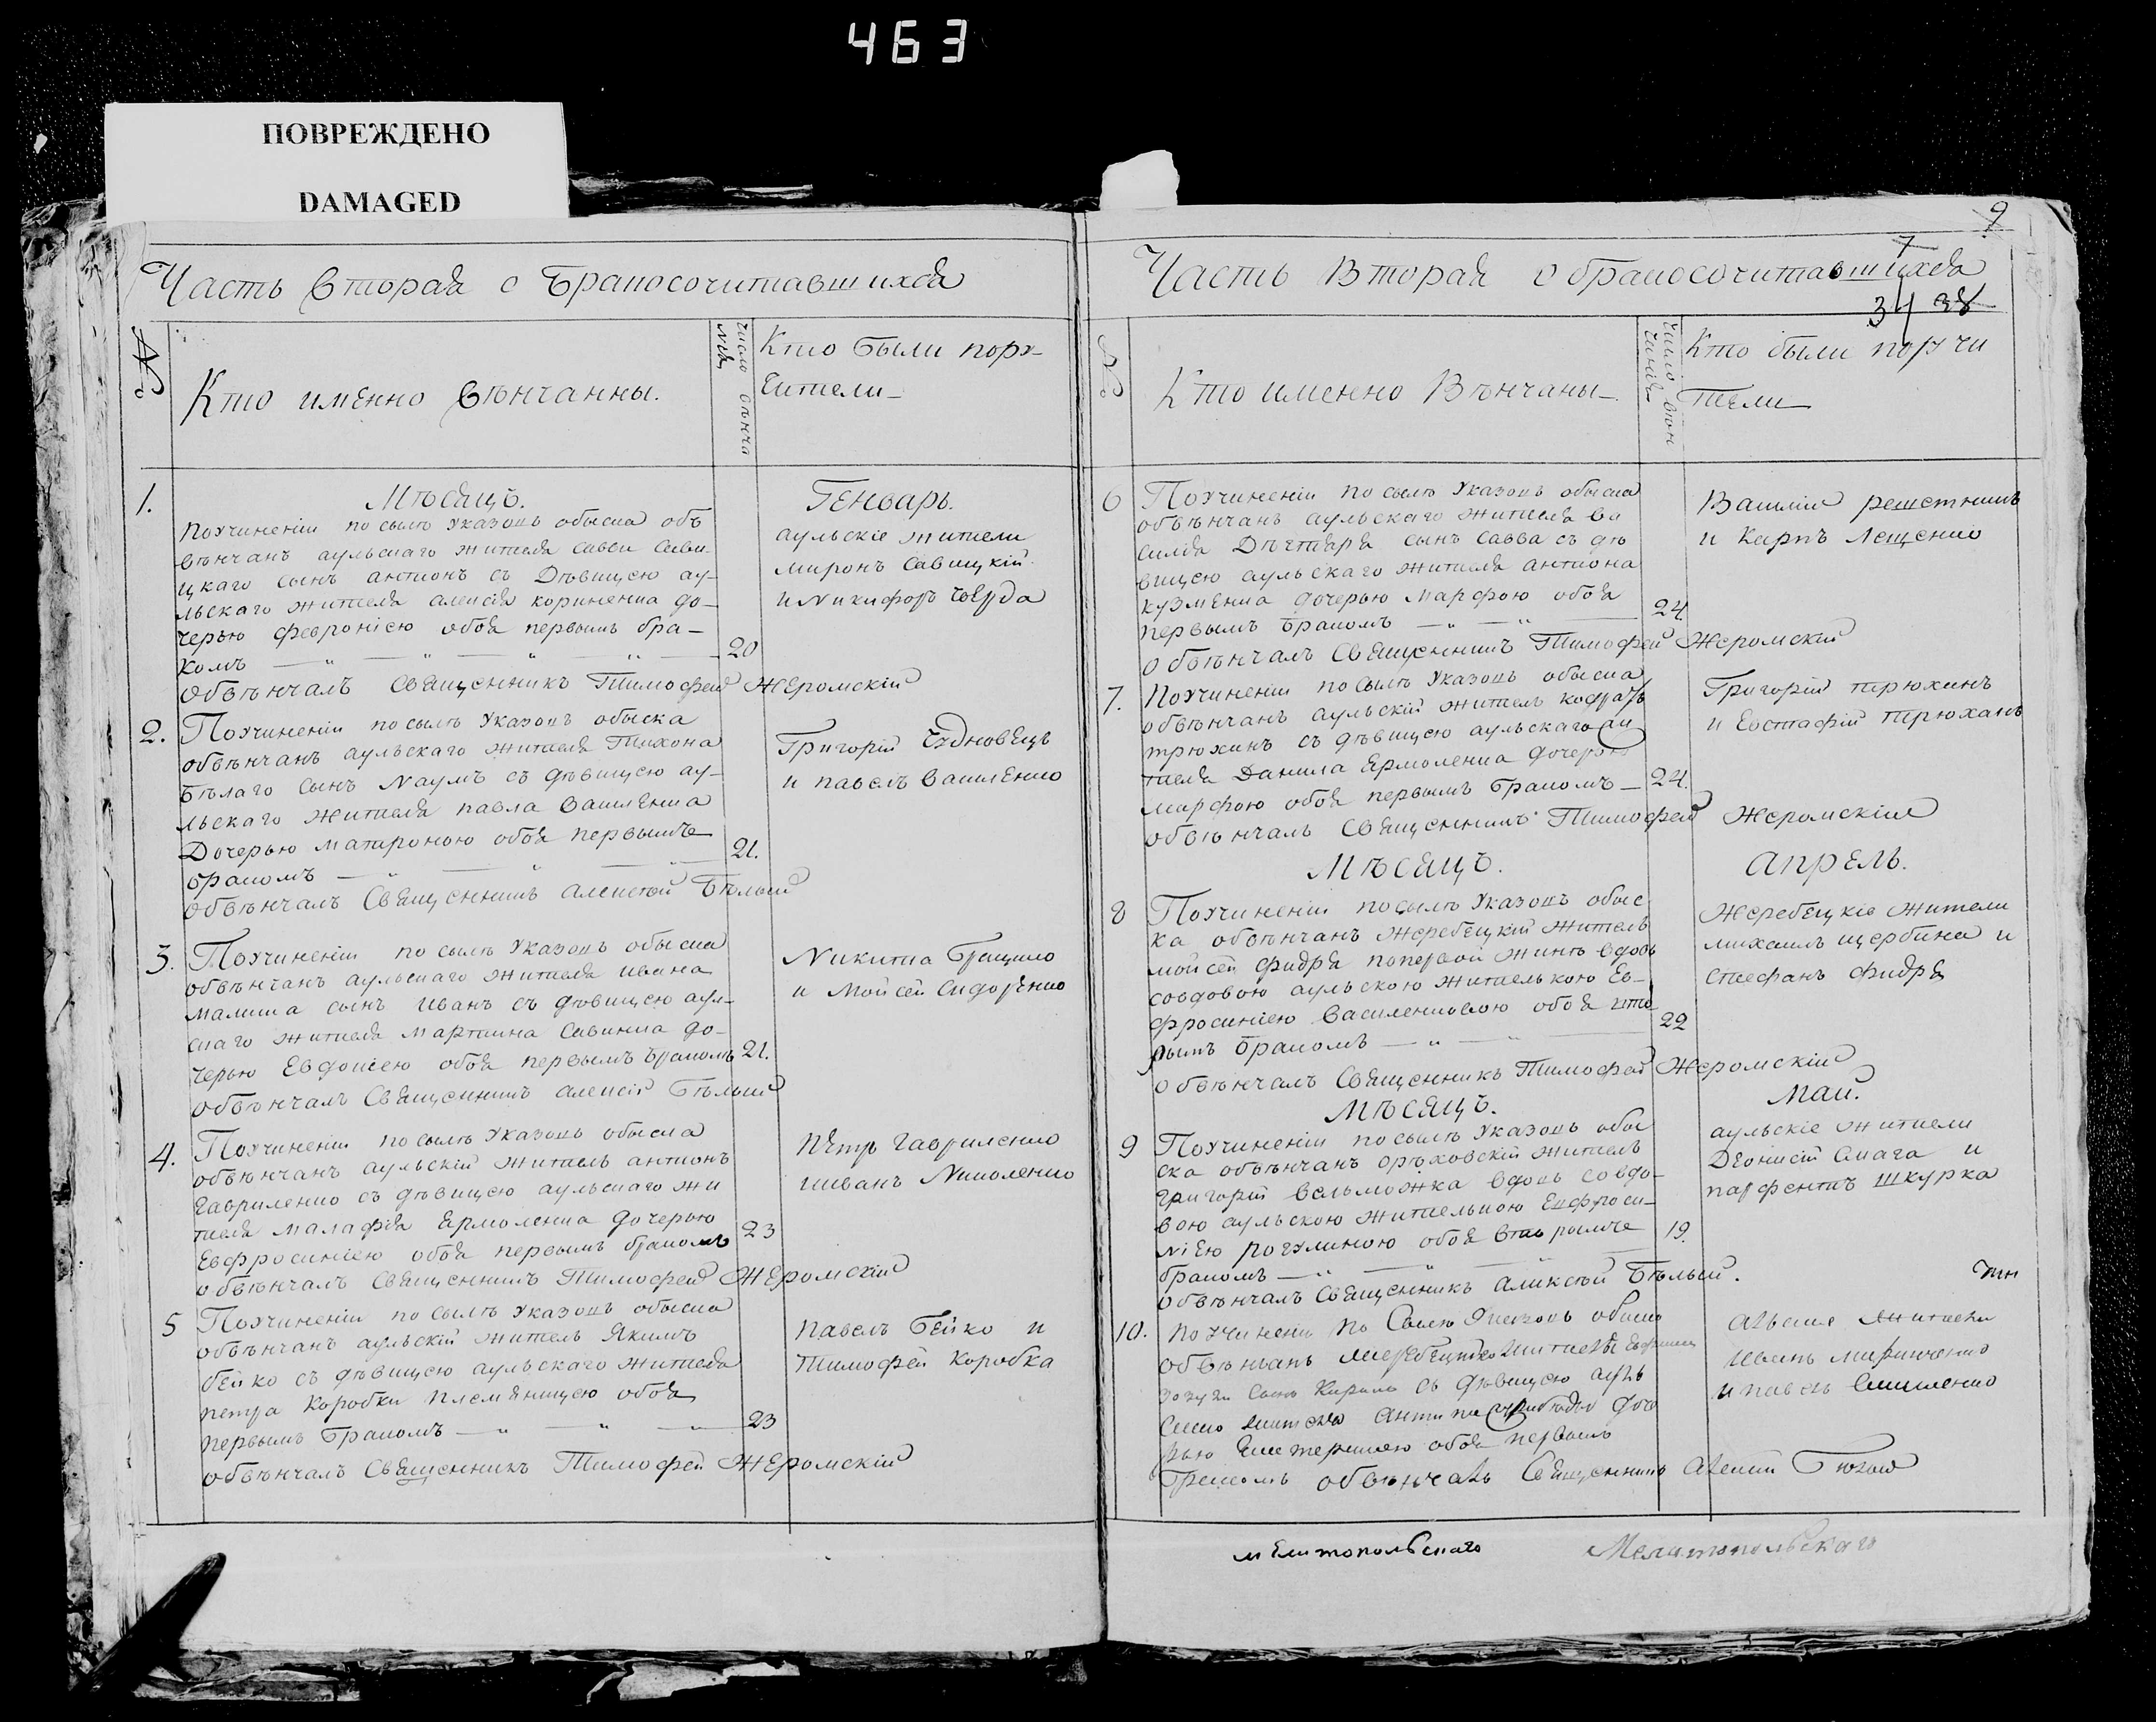 463
ПОВРЕЖДЕНО
DAMAGED
Часть вторая о браносочитавшихся
№
Кто именно вѣнчанны.
число вѣнча
Кто были пору
чители
1.
Мѣсяцъ.
Генварь.
По учинении по сылѣ указовъ обыска объ
вѣнчанъ аульскаго жителя саввы сави
цкаго сынъ антионъ съ дѣвицею ау-
льскаго жителя алексѣя
до-
черью феврониею обоя первымъ бра-
комъ
20
обвѣнчалъ священникъ Тимофей Жеромскій
аульскіе жители
миронъ савицкій
и Никифоръ
2.
По учинении по сылѣ указовъ обыска
обвѣнчанъ аульскаго жителя Тихона
Бѣлаго сынъ Наумъ съ дѣвицею ау-
льскаго жителя павла василенка
дочерью матароною обоя первымъ
бракомъ
21.
обвѣнчалъ священникъ алексѣй Бѣлый
Григорій Чудновецъ
и павелъ василенко
3.
По учинении по сылѣ указовъ обыска
обвѣнчанъ аульскаго жителя ивана
малыша сынъ иванъ съ дѣвицею аул-
скаго жителя мартына савинка до-
черью Евдокіею обоя первымъ бракомъ 21.
обвѣнчалъ священникъ алексѣй Бѣлый
Никита
и Мойсей Сидоренко
4.
По учинении по сылѣ указовъ обыска
обвѣнчанъ аульскій житель антионъ
гавриленко съ дѣвицею аульскаго жи
теля малафѣя Ермоленка дочерью
Евфросиніею обоя первымъ бракомъ 23
обвѣнчалъ священникъ Тимофей Жеромскій
Петръ гавриленко
и иванъ Николенко
5
По учинении по сылѣ указовъ обыска
обвѣнчанъ аульскій житель Якимъ
бейко съ дѣвицею аульскаго жителя
петра коробки племѣницею обоя
первымъ бракомъ
23
обвѣнчалъ священникъ Тимофей Жеромскій
павелъ Бейко и
Тимофей коробка
9
7
Часть Вторая о браносочитавшихся
34 38
№
Кто именно Вѣнчаны
число вѣн
чания
Кто были поручи
тели
6
По учинении по сылѣ указовъ обыска
обвѣнчанъ аульскаго жителя ва
силія
сынъ савва съ дѣ
вицею аульскаго жителя антиона
кузменка дочерью марфою обоя
первымъ бракомъ
24.
обвѣнчалъ Священникъ Тимофей Жеромскій
Василій решетникъ
и Карпъ Лещенко
7.
По учинении по сылѣ указовъ обыска
обвѣнчанъ аульскій житель кодратъ
трюхинъ съ дѣвицею аульскаго жи
теля Данила Ермоленка дочерью
марфою обоя первымъ бракомъ 24.
обвѣнчалъ священникъ Тимофей Жеромскій
Григорій трюхинъ
и Евстафій трюханъ
Мѣсяцъ.
апрель.
8
По учинении по сылѣ указовъ обыс
ка обвѣнчанъ жеребецкій житель
мойсей фидря по первой жинѣ вдовъ
со вдовою аульскою жителькою Ев-
фросиніею василенковою обоя вто
рымъ бракомъ
22
обвѣнчалъ Священникъ Тимофей Жеромскій
Жеребецкіе жители
михаилъ щербина и
стефанъ фидря
Мѣсяцъ.
Май.
9
По учинении по сылѣ указовъ обы
ска обвѣнчанъ орѣховскій житель
григорій вельможка вдовъ со вдо-
вою аульскою жителькою Евфроси-
ніею рогулиною обоя вторымъ
19.
бракомъ
обвѣнчалъ священникъ аликсѣй Бѣлый.
аульскіе жители
Деонисій Снага и
парфентъ шкурка
10.
По учинении по силѣ указовъ обыска
обвѣнчанъ жеребецкаго жителя
зозули сынъ Кирило съ дѣвицею ауль
скаго жителя антипа
доче
рью Екатериною обоя первымъ
бракомъ обвѣнчалъ Священникъ алексѣй Бѣлый
аульскіе жители
иванъ
и павелъ василенко
мелитопольскаго
Мелитопольскаго